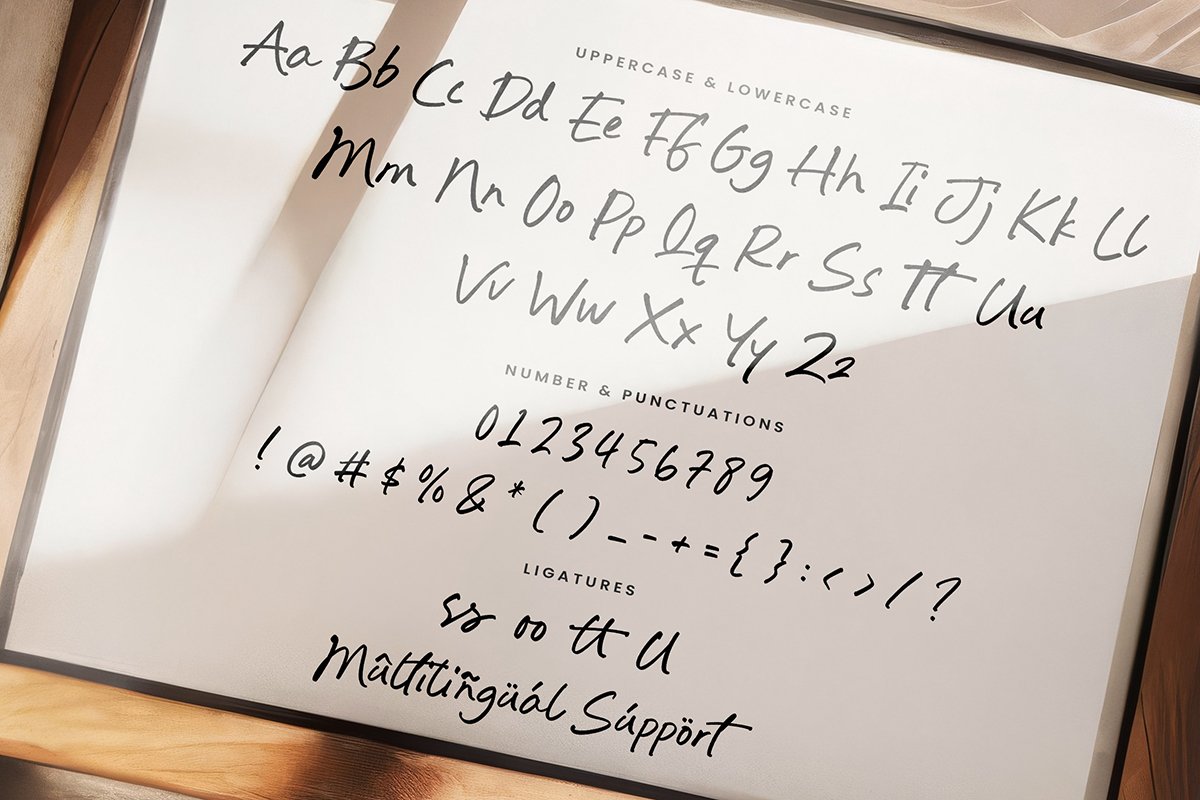 UPPERCASE & LOWERCASE
Aa Bb Cc Dd Ee Ff Gg Hh Ii Jj Kk Ll
Mm Nn Oo Pp Qq Rr Ss Tt Uu
Vv Ww Xx Yy Zz
NUMBER & PUNCTUATIONS
0123456789
! @ # $ % & * ( ) _ - + = { } : < > / ?
LIGATURES
ss oo tt ll
Mûltitiñgüál Súppört